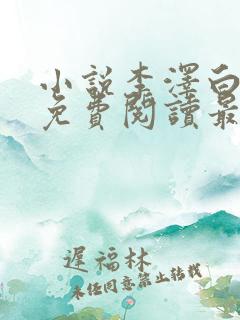 小說李澤白
免費閱讀最
遲福林
未經同意禁止轉載